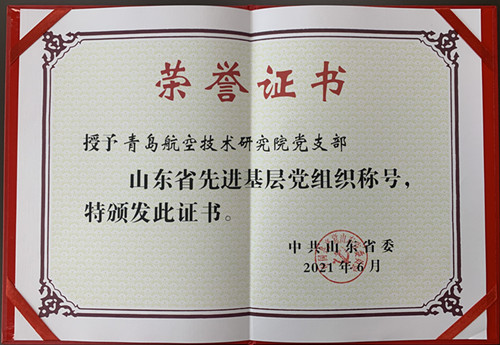 荣誉证书
授予青岛航空技术研究院党支部
山东省先进基层党组织称号，
特颁发此证书。
中共山东省委
2021年6月